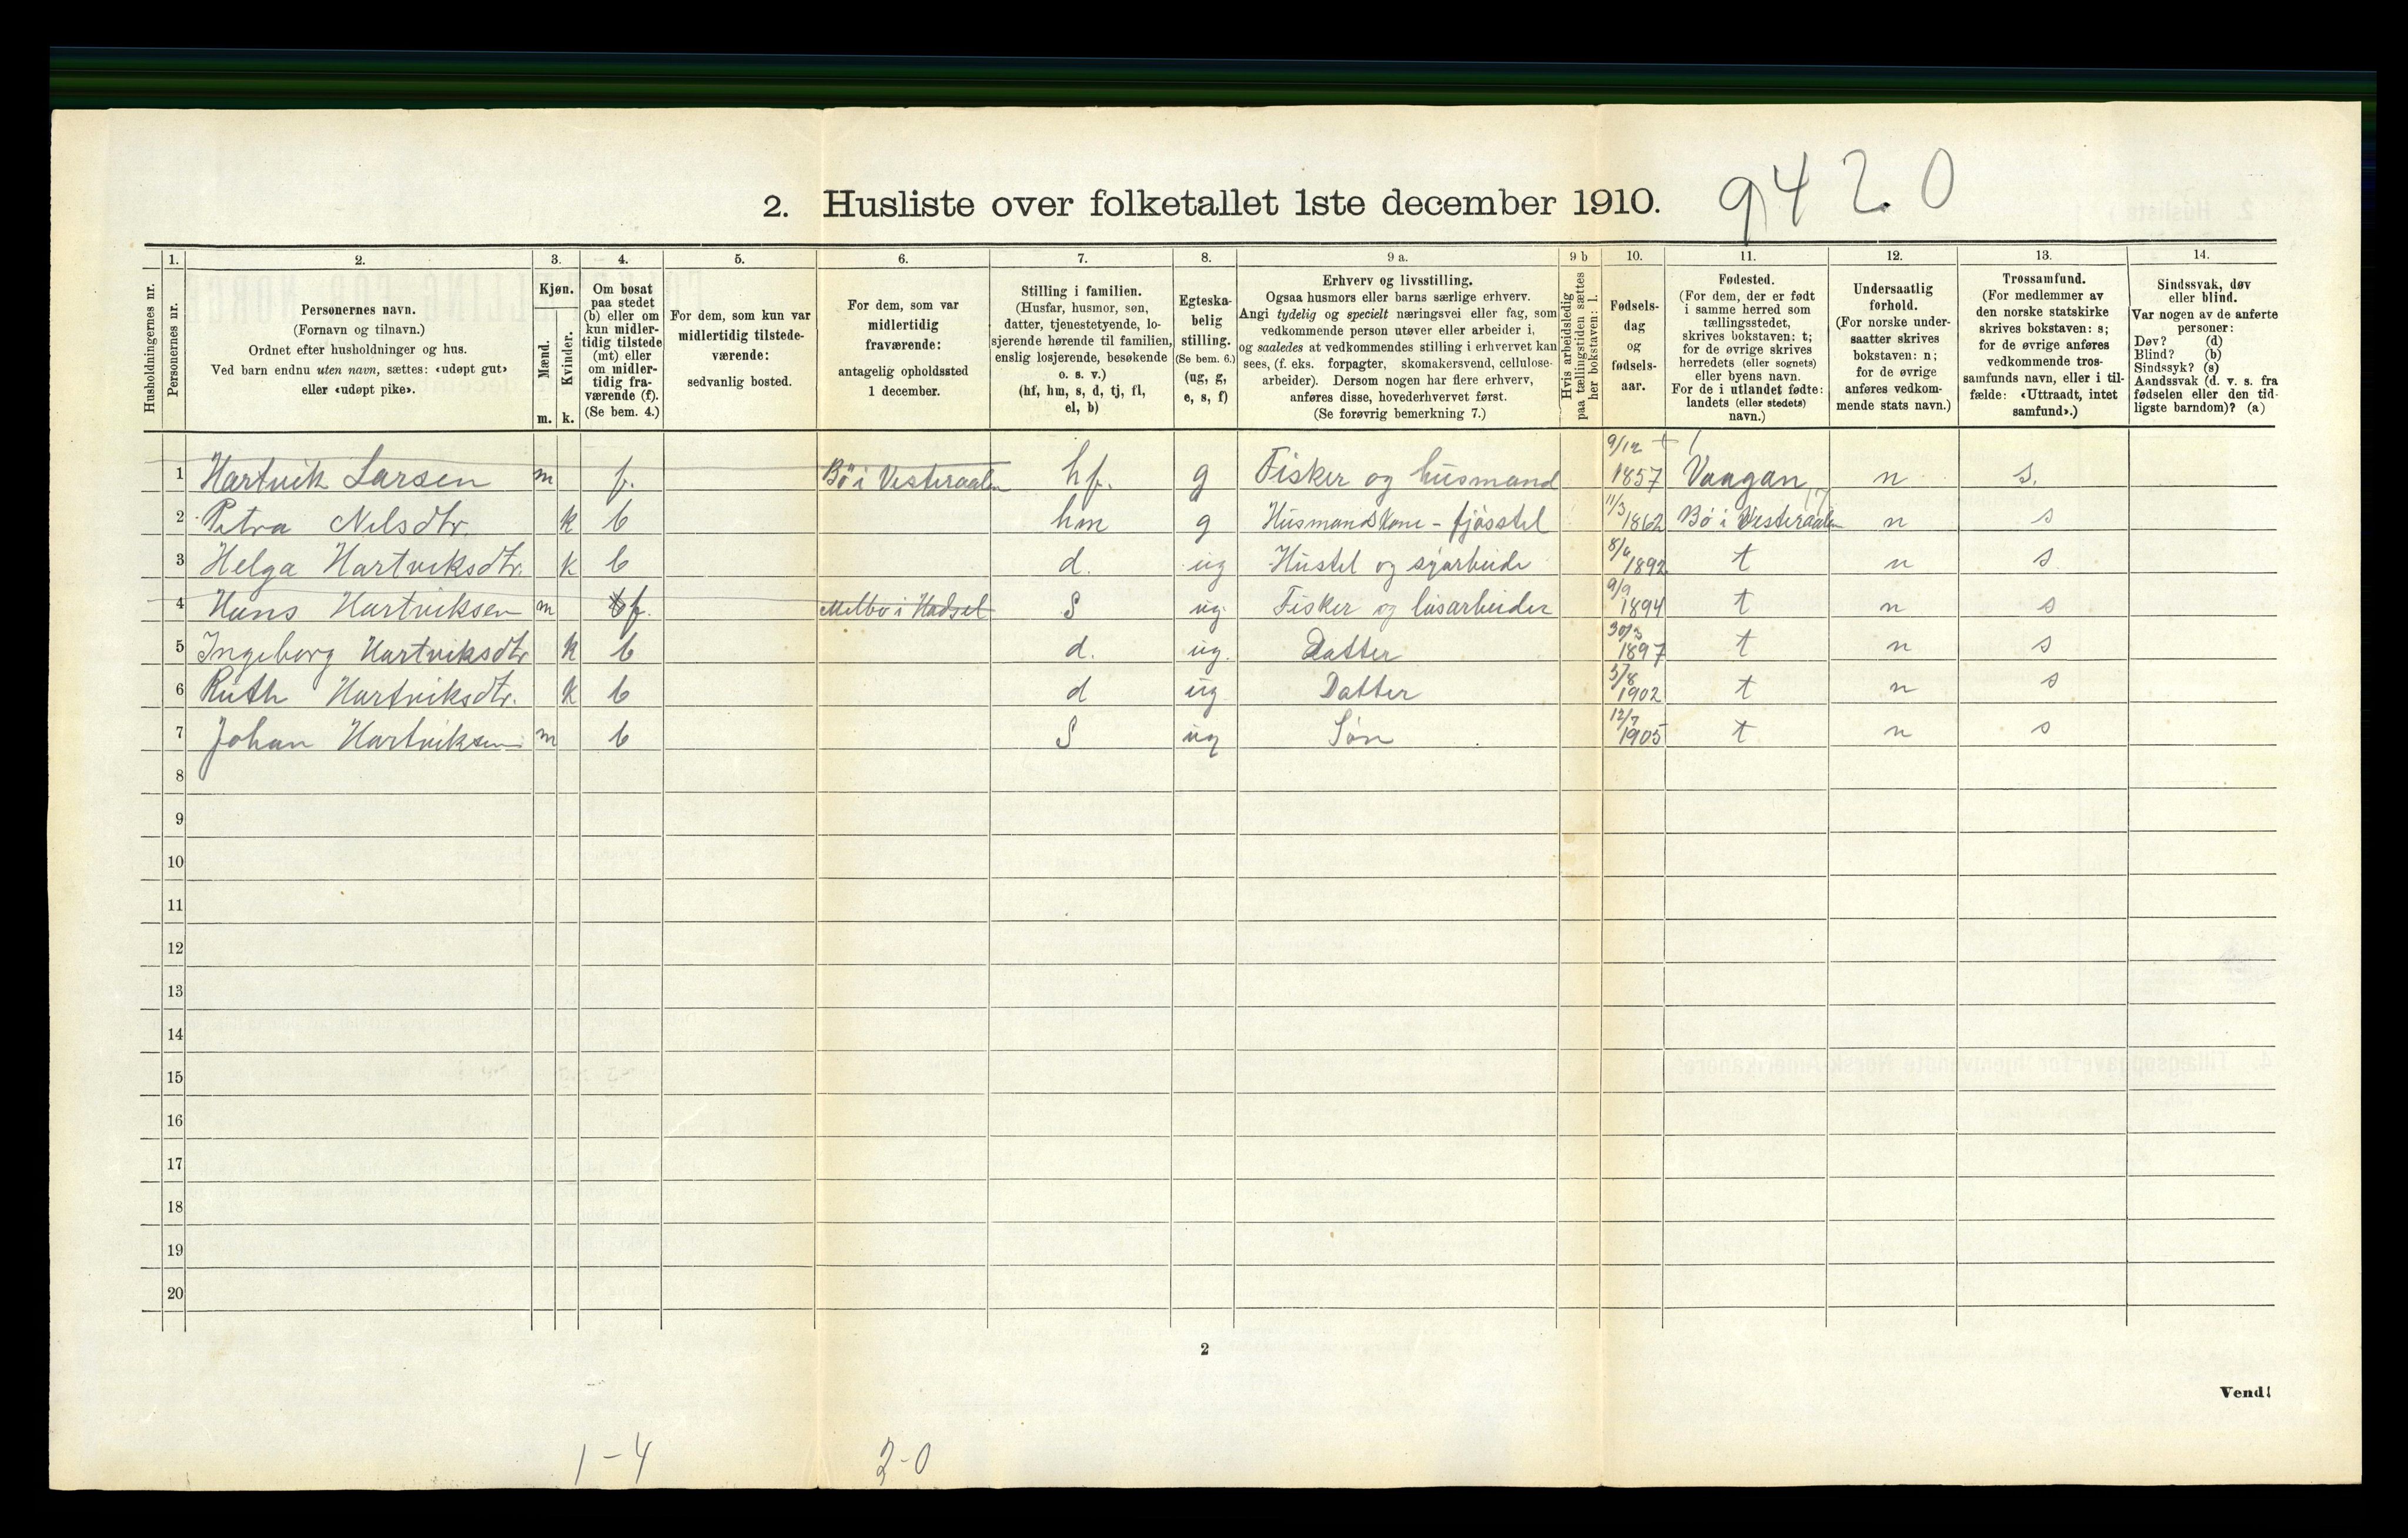 2. Husliste over folketallet 1ste december 1910. 9420
Husholdningernes nr.
1.
Personernes nr.
2.
Personernes navn.
(Fornavn og tilnavn.)
Ordnet efter husholdninger og hus.
Ved barn endnu uten navn, sættes: «udøpt gut»
eller «udøpt pike».
3.
Kjøn.
Mænd.
Kvinder.
m. k.
4.
Om bosat
paa stedet
(b) eller om
kun midler-
tidig tilstede
(mt) eller
om midler-
tidig fra-
værende (f).
(Se bem. 4.)
5.
For dem, som kun var
midlertidig tilstede-
værende:
sedvanlig bosted.
6.
For dem, som var
midlertidig
fraværende:
antagelig opholdssted
1 december.
7.
Stilling i familien.
(Husfar, husmor, søn,
datter, tjenestetyende, lo-
sjerende hørende til familien,
enslig losjerende, besøkende
o. s. v.)
(hf, hm, s, d, tj, fl,
el, b)
8.
Egteska-
belig
stilling.
(Se bem. 6.)
(ug, g,
e, s, f)
9 a.
Erhverv og livsstilling.
Ogsaa husmors eller barns særlige erhverv.
Angi tydelig og specielt næringsvei eller fag, som
vedkommende person utøver eller arbeider i,
og saaledes at vedkommendes stilling i erhvervet kan
sees, (f. eks. forpagter, skomakersvend, cellulose-
arbeider). Dersom nogen har flere erhverv,
anføres disse, hovederhvervet først.
(Se forøvrig bemerkning 7.)
9 b
Hvis arbeidsledig
paa tællingstiden sættes
her bokstaven: l.
10.
Fødsels-
dag
og
fødsels-
aar.
11.
Fødested.
(For dem, der er født
i samme herred som
tællingsstedet,
skrives bokstaven: t;
for de øvrige skrives
herredets (eller sognets)
eller byens navn.
For de i utlandet fødte:
landets (eller stedets)
navn.)
12.
Undersaatlig
forhold.
(For norske under-
saatter skrives
bokstaven: n;
for de øvrige
anføres vedkom-
mende stats navn.)
13.
Trossamfund.
(For medlemmer av
den norske statskirke
skrives bokstaven: s;
for de øvrige anføres
vedkommende tros-
samfunds navn, eller i til-
fælde: «Uttraadt, intet
samfund».)
14.
Sindssvak, døv
eller blind.
Var nogen av de anførte
personer:
Døv? (d)
Blind? (b)
Sindssyk? (s)
Aandssvak (d. v. s. fra
fødselen eller den tid-
ligste barndom)? (a)
1 Hartvik Larsen m f. Bö i Vesteraalen hf. g Fisker og husmand 9/12 1857 Vaagan n s.
2 Petra Nilsdtr. k b hm g Husmandskone - fjösstel 11/3 1862 Bö i Vesteraalen n s
3 Helga Hartviksdtr. k b d. ug Hustel og syarbeide 1892 t n s
4 Hans Hartviksen m f. Melbo i Hadsel S ug Fisker og lösarbeider 9/9 1894 t n s
5 Ingeborg Hartviksdtr k b d. ug. Datter 30/3 1897 t n s
6 Ruth Hartviksdtr. k b d ug Datter 1902 t n s
7 Johan Hartviksen m b S ug Sön 12/7 1905 t n s
8
9
10
11
12
13
14
15
16
17
18
19
20
2
Vend!
1-4 2-0